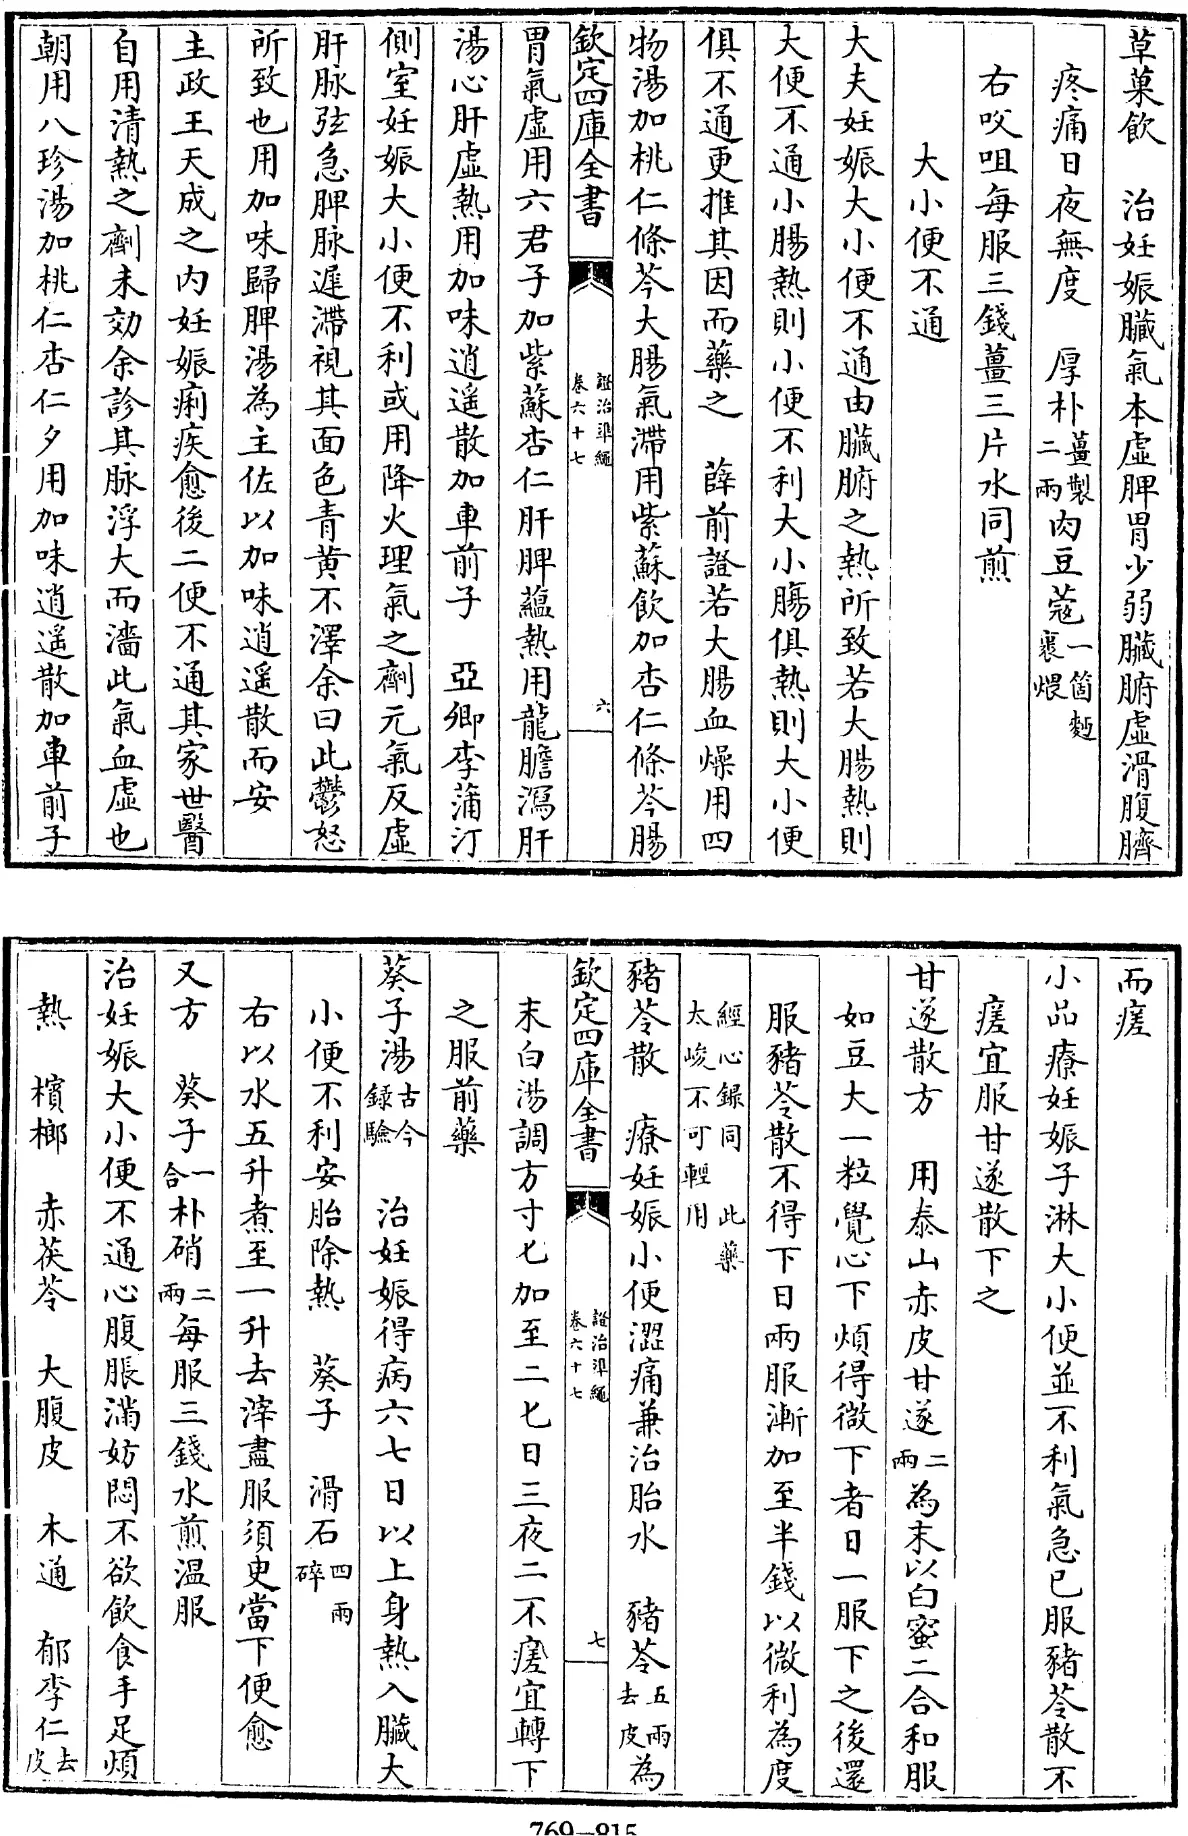 草菓飲　治妊娠臟氣本虛脾胃少弱臟腑虛滑腹臍
疼痛日夜無度　厚朴薑製二兩肉豆蔻一箇麪裹煨
右㕮咀每服三錢薑三片水同煎
大小便不通
大夫妊娠大小便不通由臟腑之熱所致若大腸熱則
大便不通小腸熱則小便不利大小腸俱熱則大小便
俱不通更推其因而藥之　薛前證若大腸血燥用四
物湯加桃仁條芩大腸氣滯用紫蘇飲加杏仁條芩腸
欽定四庫全書　證治準繩卷六十七　六
胃氣虛用六君子加紫蘇杏仁肝脾蘊熱用龍膽瀉肝
湯心肝虛熱用加味逍遥散加車前子　亞卿李蒲汀
側室妊娠大小便不利或用降火理氣之劑元氣反虛
肝脉弦急脾脉遲滯視其面色青黄不澤余曰此鬱怒
所致也用加味歸脾湯為主佐以加味逍遥散而安
主政王天成之内妊娠痢疾愈後二便不通其家世醫
自用清熱之劑未効余診其脉浮大而濇此氣血虛也
朝用八珍湯加桃仁杏仁夕用加味逍遥散加車前子
而瘥
小品療妊娠子淋大小便並不利氣急已服豬苓散不
瘥宜服甘遂散下之
甘遂散方　用泰山赤皮甘遂二兩為末以白蜜二合和服
如豆大一粒覺心下煩得微下者日一服下之後還
服豬苓散不得下日兩服漸加至半錢以微利為度
經心録同　此藥太峻不可輕用
豬苓散　療妊娠小便澀痛兼治胎水　豬苓五兩去皮為
欽定四庫全書　證治準繩卷六十七　七
末白湯調方寸匕加至二匕日三夜二不瘥宜轉下
之服前藥
葵子湯古今録驗　治妊娠得病六七日以上身熱入臟大
小便不利安胎除熱　葵子　滑石四兩碎
右以水五升煮至一升去滓盡服須臾當下便愈
又方　葵子一合朴硝二兩每服三錢水煎温服
治妊娠大小便不通心腹脹滿妨悶不欲飲食手足煩
熱　檳榔　赤茯苓　大腹皮　木通　郁李仁去皮
769—915